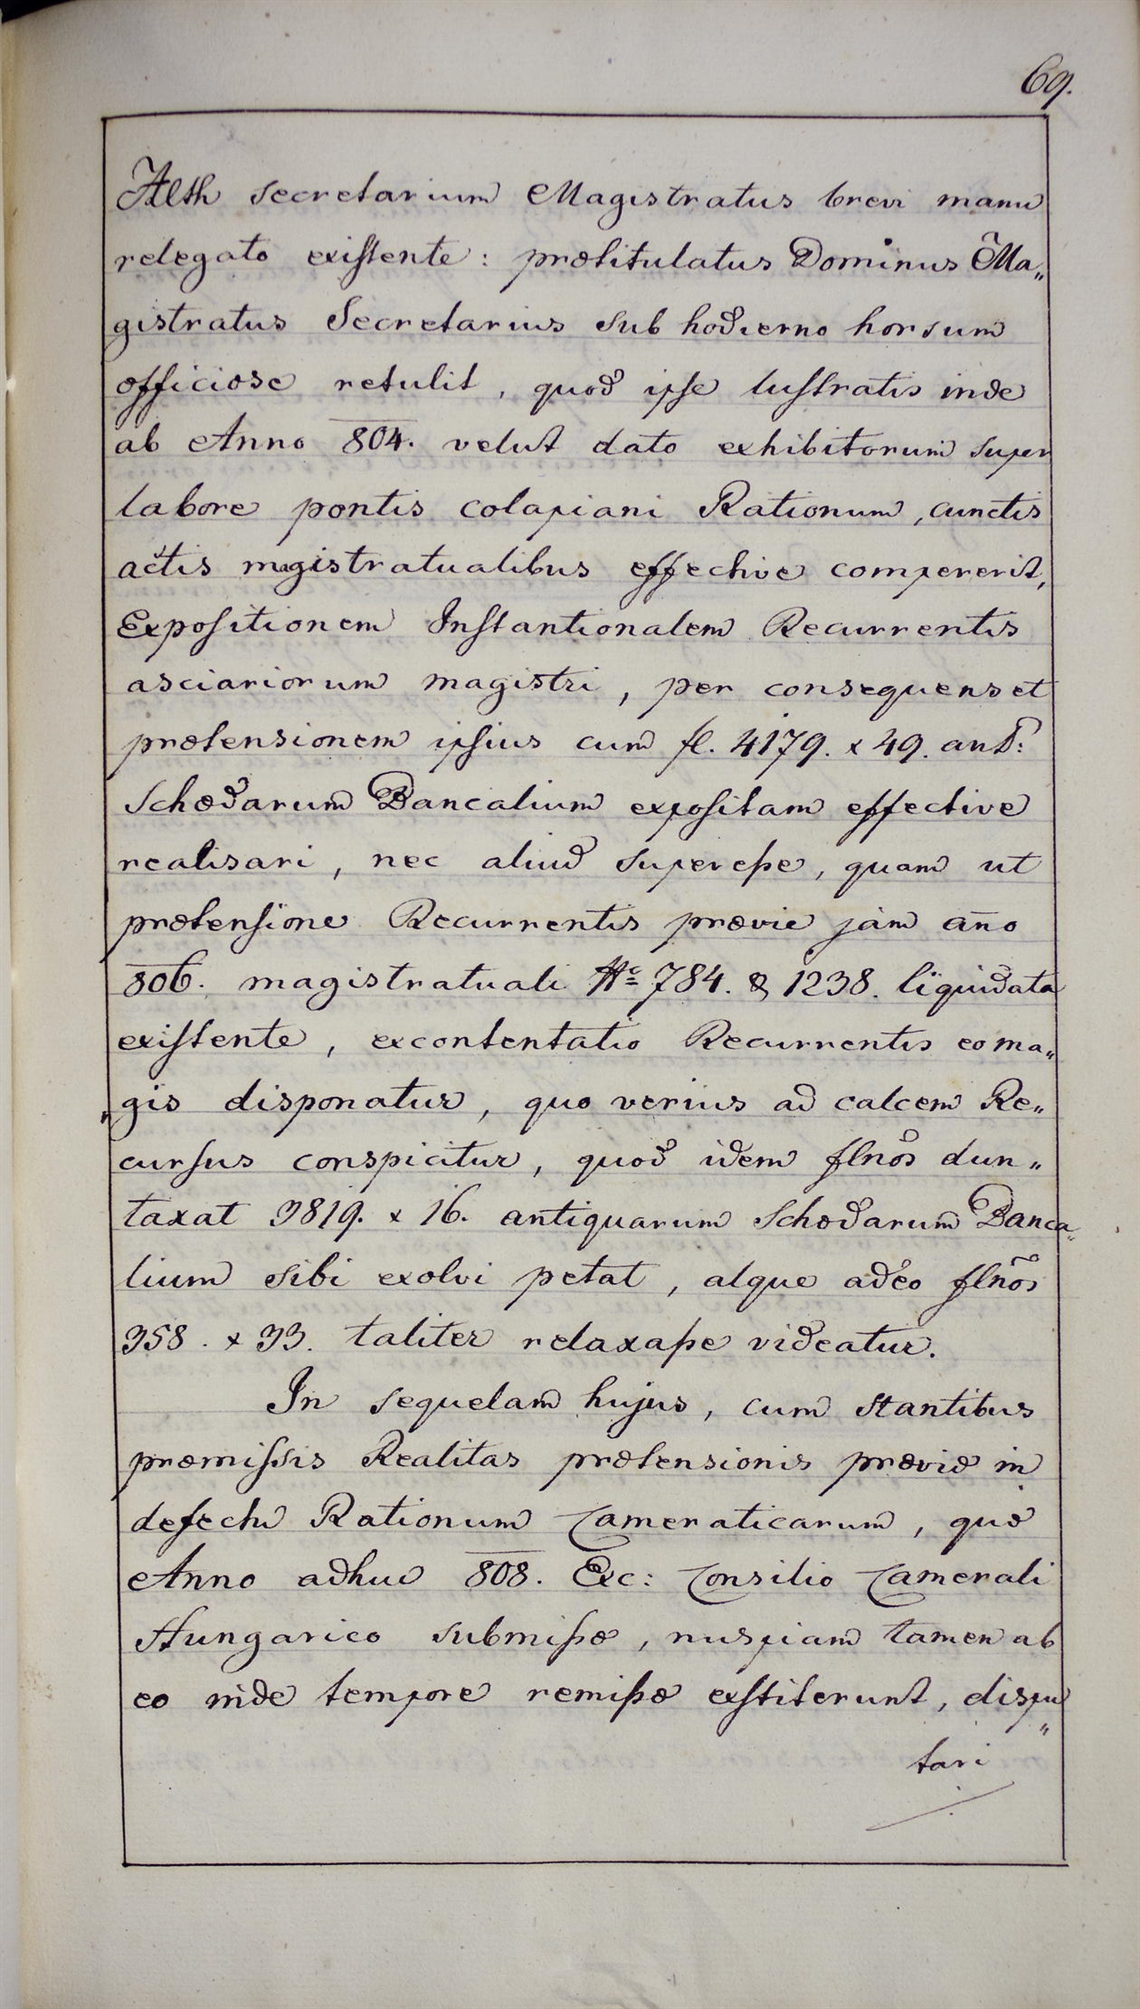 69.
Alth Secretarium Magistratus brevi manu
relegato existente: prætitulatus Dominus Ma„
gistratus Secretarius sub hodierno horsum
officiose retulit, quod ipse lustratis inde
ab Anno 804. velut dato exhibitorum super
labore pontis colapiani Rationum, cunctis
actis magistratualibus effective compererit,
Expositionem Instantionalem Recurrentis
asciariorum magistri, per consequens et
prætensionem ipsius cum fl. 4179. x 49. ant:
Schædarum Bancalium expositam effective
realisari, nec aliud superesse, quam ut
prætensione Recurrentis prævie jam año
806. magistratuali Nᵒ 784. & 1238. liquidata
existente, excontentatio Recurrentis eo ma„
„gis disponatur, quo verius ad calcem Re„
cursus conspicitur, quod idem flnõs dun„
taxat 3819. x 16. antiquarum Schædarum Banca„
lium sibi exolvi petat, atque adeo flnõs
358. x 33. taliter relaxasse videatur.
In sequelam hujus, cum stantibus
præmissis Realitas prætensionis præviæ in
defectu Rationum Cameraticarum, quæ
Anno adhuc 808. Exc: Consilio Camerali
Hungarico submissæ, nuspiam tamen ab
eo inde tempore remissæ exstiterunt, dispu„
tari